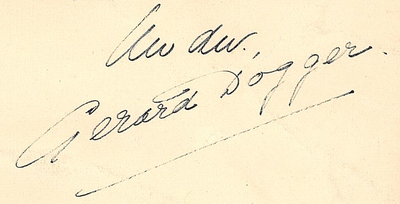 Uw dw.,
Gerard Dogger.